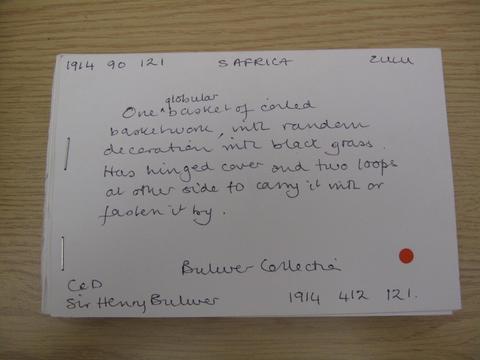 1914 90 121 S AFRICA ZULU
One ^globular basket of coiled
basketwork, with random
decoration with black grass.
Has hinged cover and two loops
at other side to carry it with or
fasten it by.
Bulwer Collection
C&D
Sir Henry Bulwer 1914 412 121.